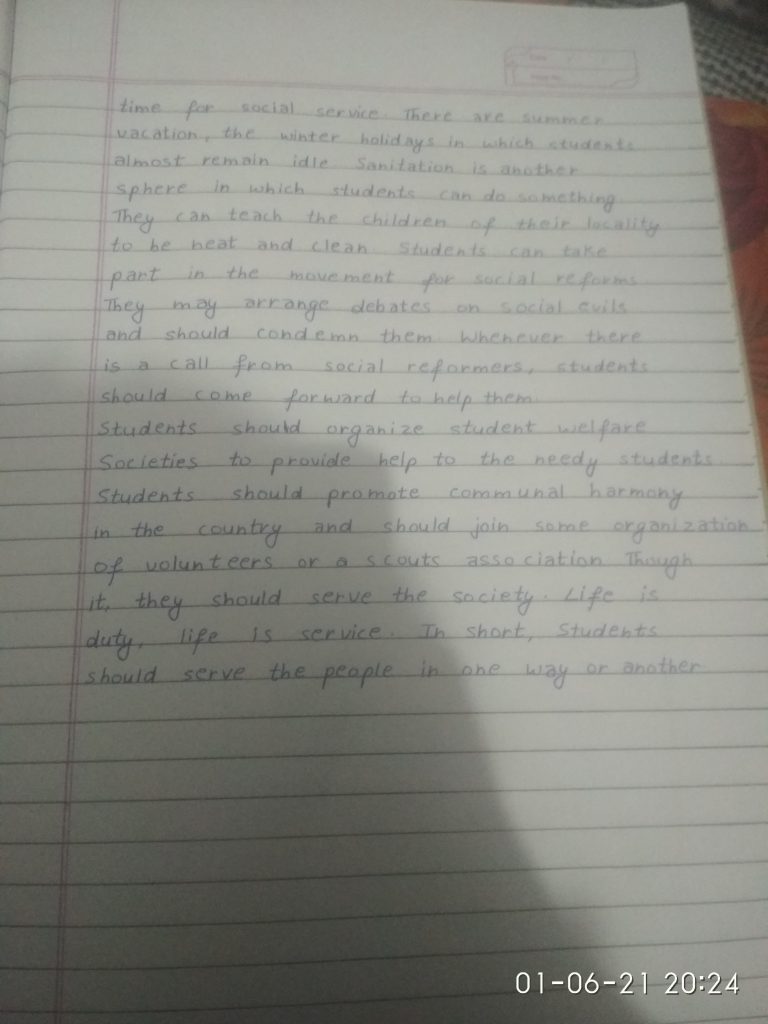 time for social service. There are summer
vacation, the winter holidays in which students
almost remain idle. Sanitation is another
sphere in which students can do something.
They can teach the children of their locality
to be neat and clean. Students can take
part in the movement for social reforms.
They may arrange debates on social evils
and should condemn them. Whenever there
is a call from social reformers, students
should come forward to help them.
Students should organize student welfare
Societies to provide help to the needy students.
Students should promote communal harmony
in the country and should join some organization
of volunteers or a scouts association. Though
it, they should serve the society. Life is
duty, life is service. In short, Students
should serve the people in one way or another
01-06-21 20:24